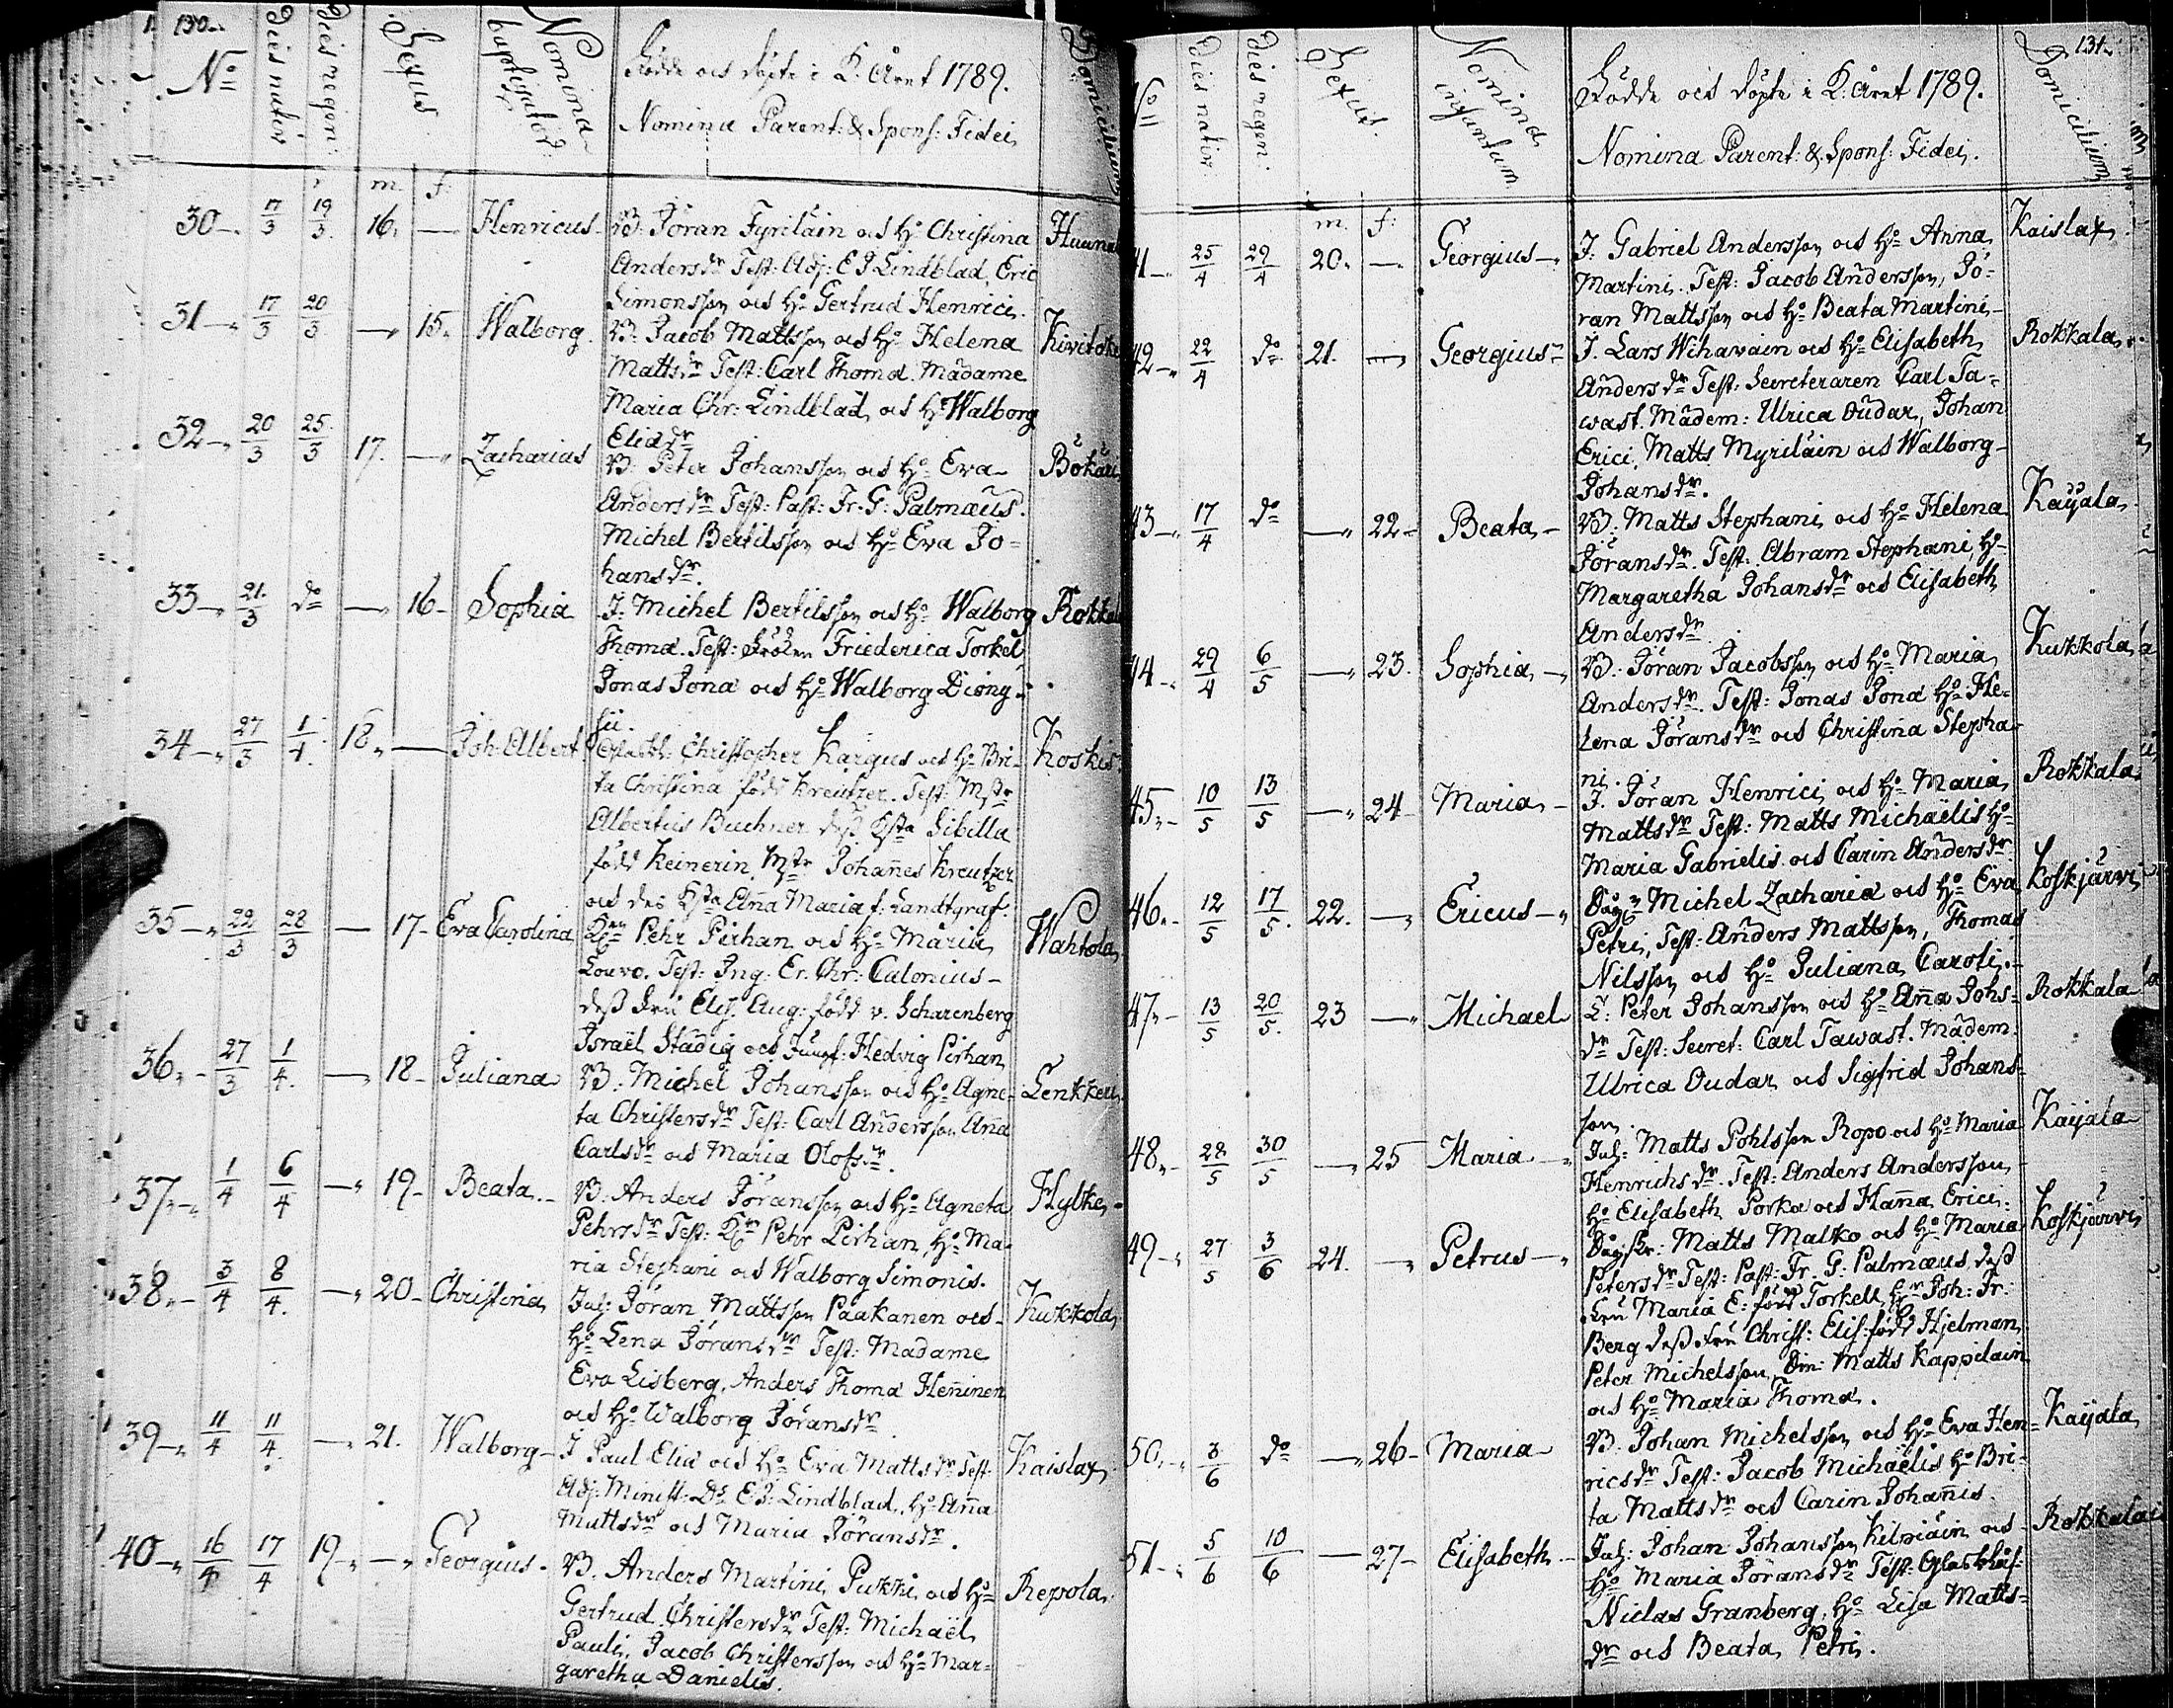 130.
No
Dies nativ:
Dies regen:
Sexus
Nomina baptizator:
Födde och döpte i K: Året 1789.
Nomina Parent: & Spons: Fidei
Domicilium
m. f:
30 17/3 19/3 16. — Henricus B: Jöran Tyriläin och Ho Christina
Andersdr Test: Adj: E J Lindblad, Eric
Simonsson och Ho Gertrud Henrici.
31 17/3 20/3 — 15. Walborg B: Jacob Mattsson och Ho Helena
Mattsdr Test: Carl Thomæ. Madame
Maria Chr: Lindblad, och Ho Walborg
Eliædr
32 20/3 25/3 17. — Zacharias B: Peter Johansson och Ho Eva
Andersdr Test: Past: Fr. G: Palmæus.
Michel Bertilsson och Ho Eva Jo=
hansdr.
33 21/3 do — 16 Sophia J: Michel Bertilsson och Ho Walborg
Thomæ. Test: Fröken Friederica Torkel
Jonas Jonæ och Ho Walborg Diony=
sii.
34 27/3 1/4 18. — Joh: Albert Christopher Kargus och Ho Bri= Koskis
ta Christina född Kreutzer. Test: Mstr
Albertus Buchner dess Hsta Sibilla
född Keinerin, Mstr Johannes Kreutzer
och des Hsta Anna Maria f: Landtgraf.
35 22/3 28/3 — 17 Eva Carolina Pehr Pirhan och Ho Maria Wahtola
Louvo. Test: Ing: Er. Chr: Calonius
dess Fru Elis. Aug: född v. Scharenberg
Israël Stadig och Jungf: Hedvig Pirhan
36 27/3 1/4 — 18 Juliana B: Michel Johansson och Ho Agne=
ta Christersdr Test: Carl Andersson Anna
Carlsdr och Maria Olofsdr.
37 1/4 6/4 — 19 Beata B: Anders Jöransson och Ho Agneta
Pehrsdr Test: Pehr Pirhan, Ho Ma=
ria Stephani och Walborg Simonis.
38 3/4 8/4 — 20 Christina Inh: Jöran Mattsson Paakanen och Kukkola
Ho Lena Jöransdr Test: Madame
Eva Lisberg, Anders Thomæ Henninen
och Ho Walborg Jöransdr
39 11/4 11/4 — 21. Walborg J Paul Eliæ och Ho Eva Mattsdr Test: Kaislax
Adj: Minist: Ds E J: Lindblad, Ho Anna
Mattsdr och Maria Jöransdr.
40 16/4 17/4 19 — Georgius B. Anders Martini Pukki och Ho Repola
Gertrud Christersdr Test: Michaël
Pauli, Jacob Christersson och Ho Mar=
garetha Danielis.
131.
No
Dies nativ:
Dies regen:
Sexus.
Nomina infantum.
Födde och döpte i K: året 1789.
Nomina Parent: & Spons: Fidei.
Domicilium
m. f:
41 25/4 29/4 20. — Georgius J: Gabriel Andersson och Ho Anna Kaislax
Martini. Test: Jacob Andersson, Jö=
ran Mattsson och Ho Beata Martini
42 22/4 do 21. — Georgius J. Lars Wihavain och Ho Elisabeth Rokkala
Andersdr Test: Secreteraren Carl Ta=
wast. Madem: Ulrica Oudar, Johan
Erici, Matts Myriläin och Walborg
Johansdr.
43 17/4 do — 22 Beata B: Matts Stephani och Ho Helena Kaÿala
Jöransdr. Test: Abram Stephani, Ho
Margaretha Johansdr och Elisabeth
Andersdr
44 29/4 6/5 — 23. Sophia B: Jöran Jacobsson och Ho Maria Kukkola
Andersdr. Test: Jonas Jonæ Ho He=
lena Jöransdr och Christina Stepha=
ni.
45 10/5 13/5 — 24 Maria J. Jöran Henrici och Ho Maria Rokkala
Mattsdr Test: Matts Michaëlis Ho
Maria Gabrielis och Carin Andersdr
46 12/5 17/5 22. — Ericus Michel Zachariæ och Ho Eva Koskjärvi
Petri, Test: Anders Mattsson, Thomas
Nilsson och Ho Juliana Caroli.
47 13/5 20/5 23 — Michael L: Peter Johansson och Ho Anna Johs= Rokkala
dr Test: Secret: Carl Tawast. Madem:
Ulrica Oudar och Sigfrid Johans=
son.
48 28/5 30/5 — 25 Maria Inh: Matts Pohlsson Ropo och Ho Maria Kaÿala
Henrichsdr. Test: Anders Andersson
Ho Elisabeth Porka och Hanna Erici:
49 27/5 3/6 24. — Petrus Matts Malko och Ho Maria Koskjärvi
Petersdr Test: Past: Fr. G: Palmæus, dess
Fru Maria E: född Torkell, Hr Joh: Fr:
Berg dess Fru Christ: Elis: född Hjelman,
Peter Michelsson, Matts Kappilain
och Ho Maria Thomæ.
50 3/6 do — 26 Maria B. Johan Michelsson och Ho Eva Hen= Kaÿala
ricsdr Test: Jacob Michaëlis Ho Bri=
ta Mattsdr och Carin Johannis.
51 5/6 10/6 — 27 Elisabeth Inh: Johan Johansson Kilpiäin och Rokkala
Ho Maria Jöransdr Test:
Niclas Granberg, Ho Lisa Matts=
dr och Beata Petri.